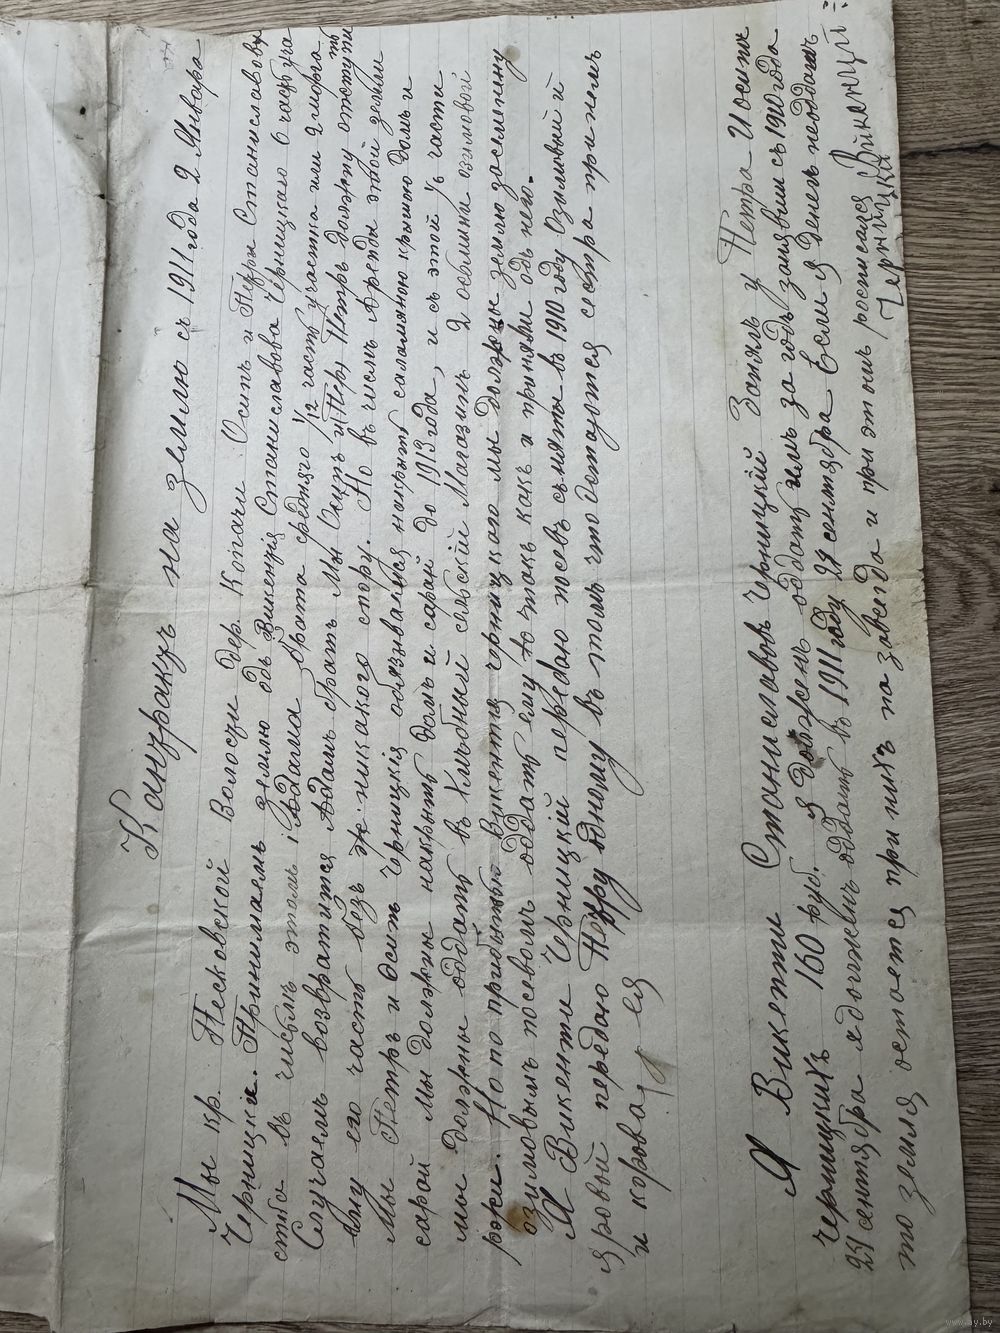 Кантракъ на землю съ 1911 года 2 Января
Мы кр. Песковской Волосци дер. Копачи Осипъ и Петръ Станиславовы
Черницкіе. Принимаемъ землю одъ Викенція Станиславова Черницкаго 6 часць уча
стка въ числѣ этомъ и Адама брата средняго 1/12 часть участка или 2 морга
Случаемъ возвратится Адамъ братъ Мы Осипъ и Петръ должны отступить
ему его часть безъ никакого спору. Но въ числѣ Аренды этой земли
Мы Петръ и Осипъ Черницкія обязываимся накрыть саламяною крышою домъ и
сарай мы должны накрыть домъ и сарай до 1913 года, и съ этой 1/6 части
мы должны оддать въ Хлѣбный сельскій Магазинъ 2 осьмины озимовой
ржи. Но по прибытіи Викентя Черницкаго мы должны землю засеменную
озимовымъ посевомъ оддать ему такъ какъ и приняли одъ него.
Я Викенти Черницкій передаю посевъ съмяты въ 1910 году Озимовый и
яровый передаю Петру одному въ томъ что остаются сестра при немъ
и корова ея
Я Викетти Станиславовъ Черницкій Занялъ у Петра и Осипа
Черницкихъ 150 руб. Я долженъ оддать имъ за годъ занявши съ 1910 года
24 сентября я долженъ оддать въ 1911 году 24 сентября Если я денегъ неоддамъ
то земля остается при нихъ на завсегда и при этомъ росписался Викенций
Черницкий
www.ay.by